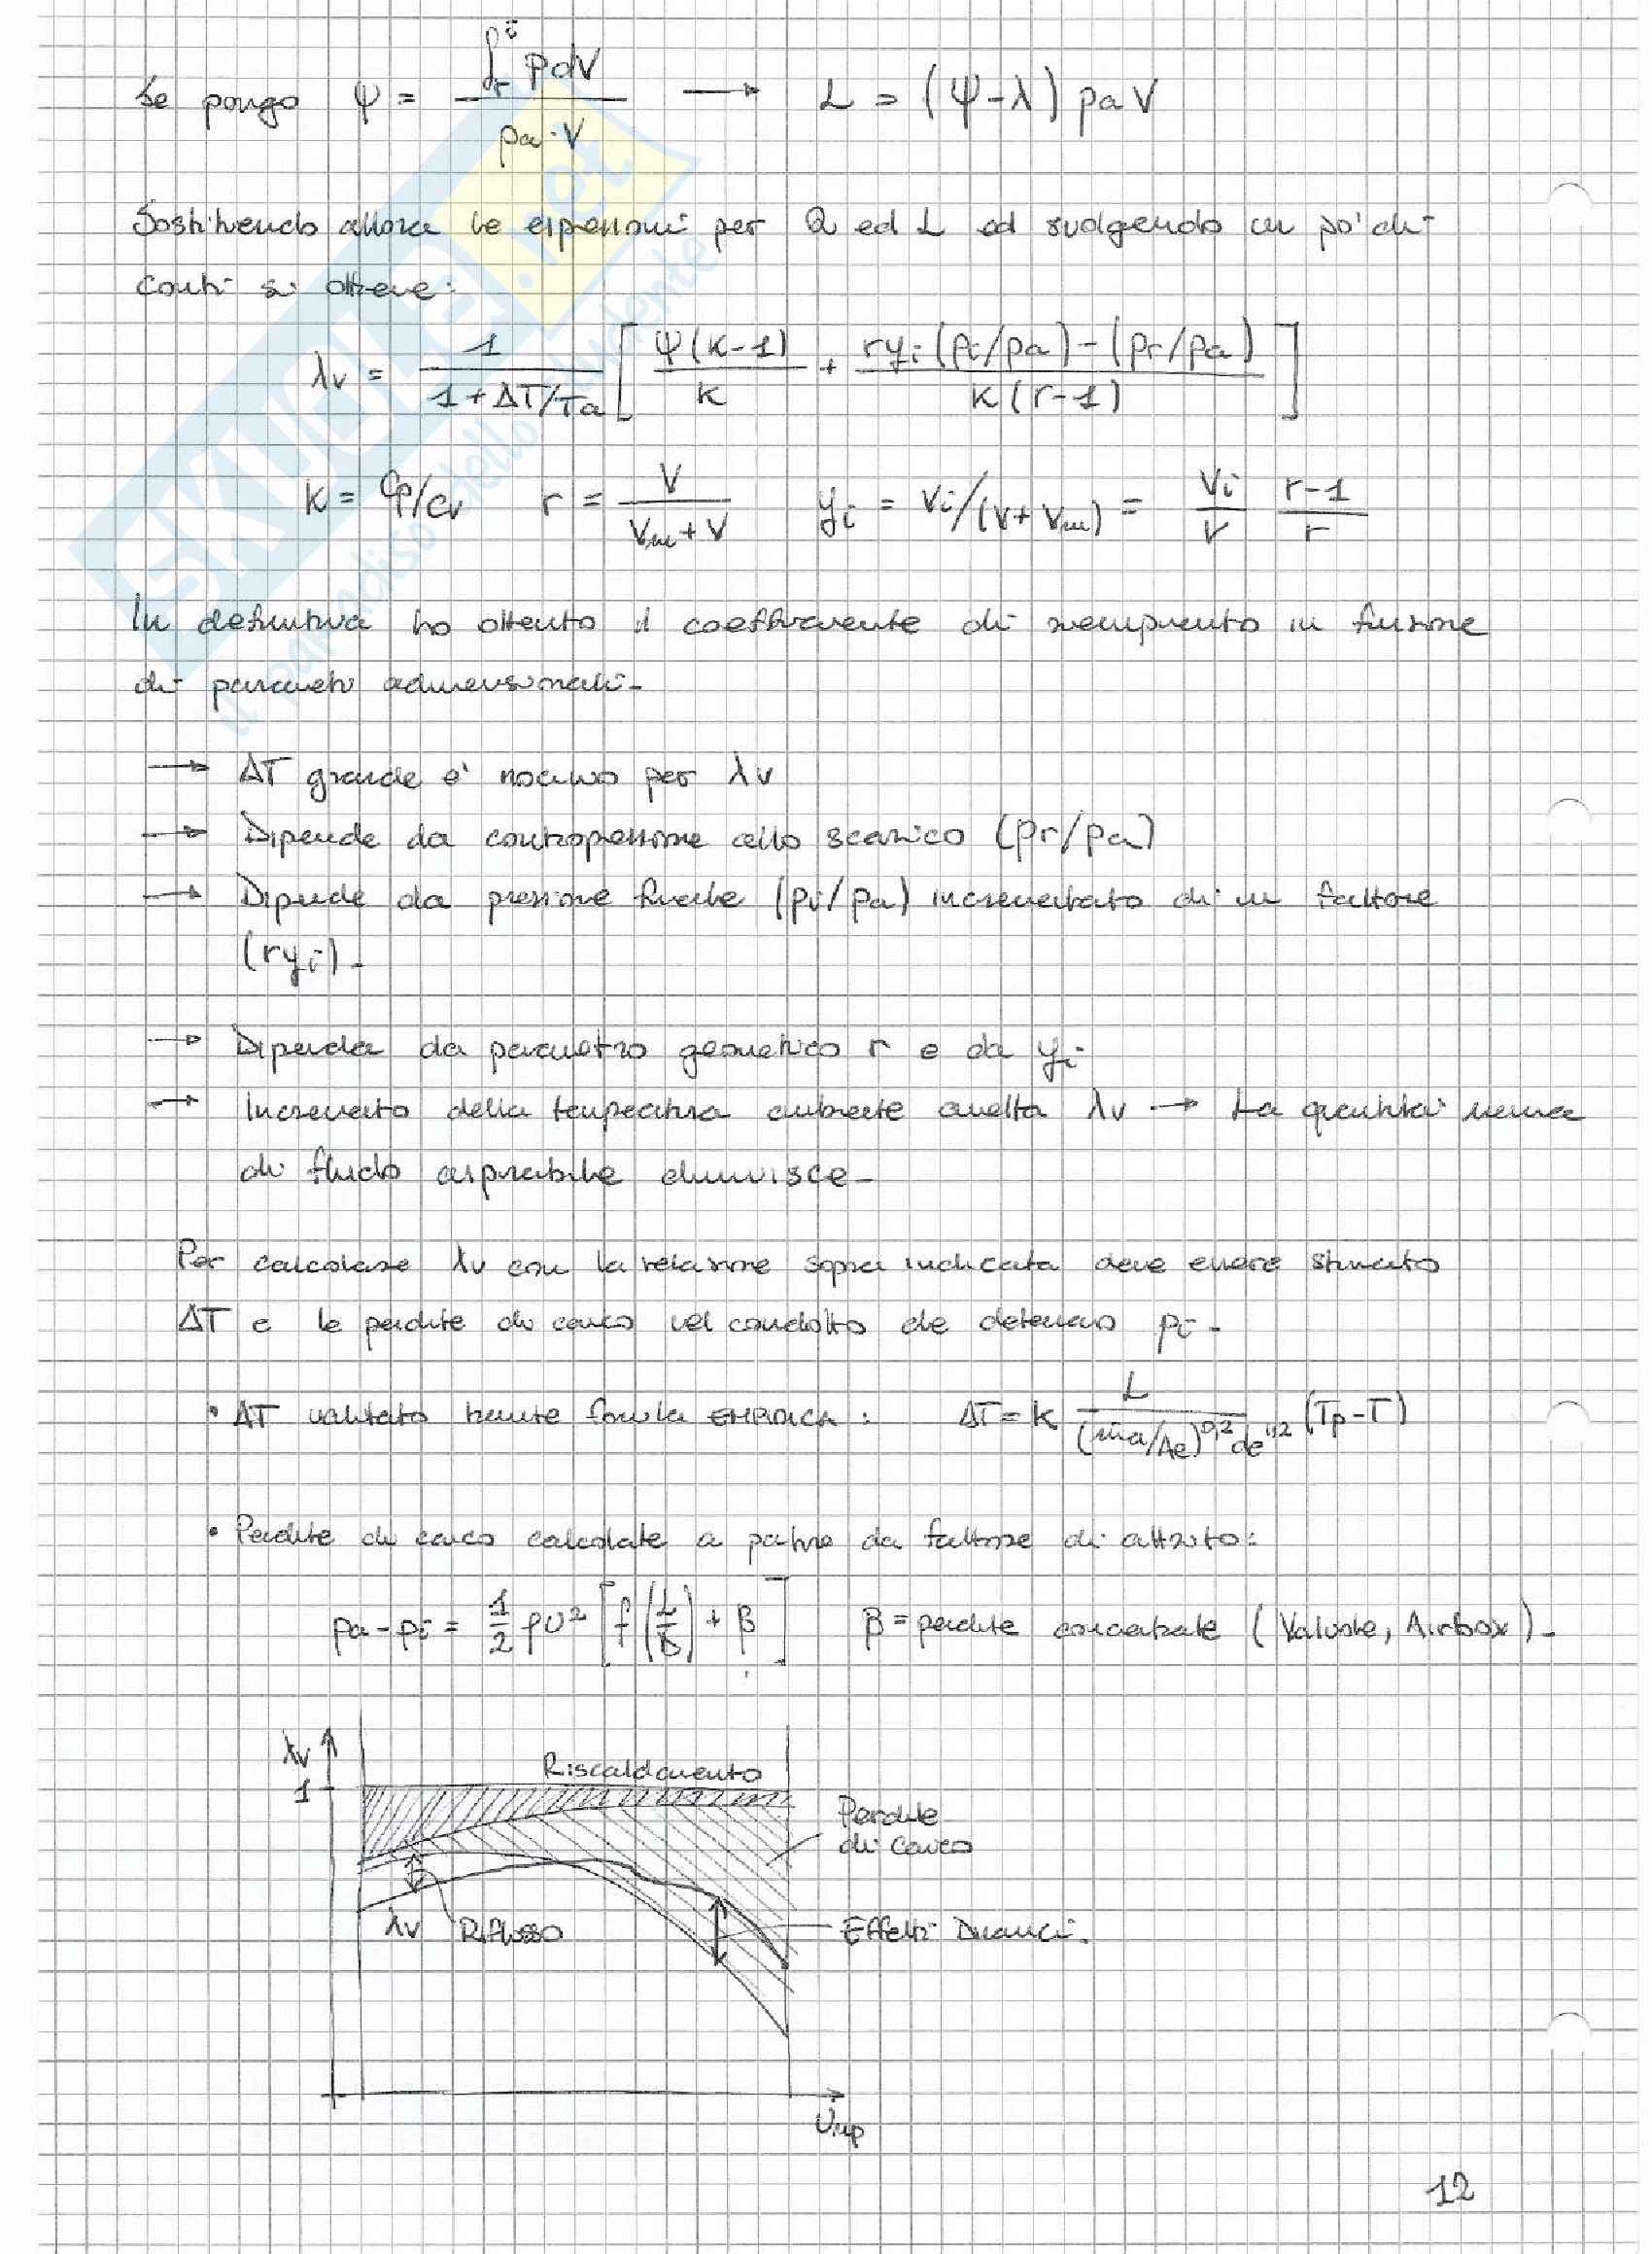 Se pongo ψ = ∫_r^i pdV / pa·V → L = (ψ-λ) pa V
Sostituendo allora le espressioni per Q ed L ed svolgendo un po' di
conti si ottiene:
λv = 1 / (1+ΔT/Ta) [ ψ(k-1) / k + (ryi(pi/pa) - (pr/pa)) / k(r-1) ]
k = Cp/cv r = V / (Vm+V) yi = Vi/(V+Vm) = Vi / V r-1 / r
In definitiva ho ottenuto il coefficiente di riempimento in funzione
di parametri adimensionali-
→ ΔT grande e' nocivo per λv
→ Dipende da contropressione allo scarico (pr/pa)
→ Dipende da pressione finale (pi/pa) incrementato di un fattore
(ryi)-
→ Dipende da parametro geometrico r e da yi
→ Incremento della temperatura ambiente λv → La quantità
di fluido aspirabile diminuisce-
Per calcolare λv con la relazione sopra indicata deve essere stimato
ΔT e le perdite di carico nel condotto che pi-
• ΔT valutato tramite formula EMPIRICA: ΔT = k L / ((ṁa/Ae)^0,2 de^1,2) (Tp-T)
• Perdite di carico calcolate a partire da fattore di attrito:
pa-pi = 1/2 ρU² [f(L/D) + β] β = perdite concentrate (Valvole, Airbox)-
λv
1
Riscaldamento
Perdite
di Carico
λv Riflusso
Effetti Dinamici.
Ump
12
SKUOLA.net
il paradiso dello studente